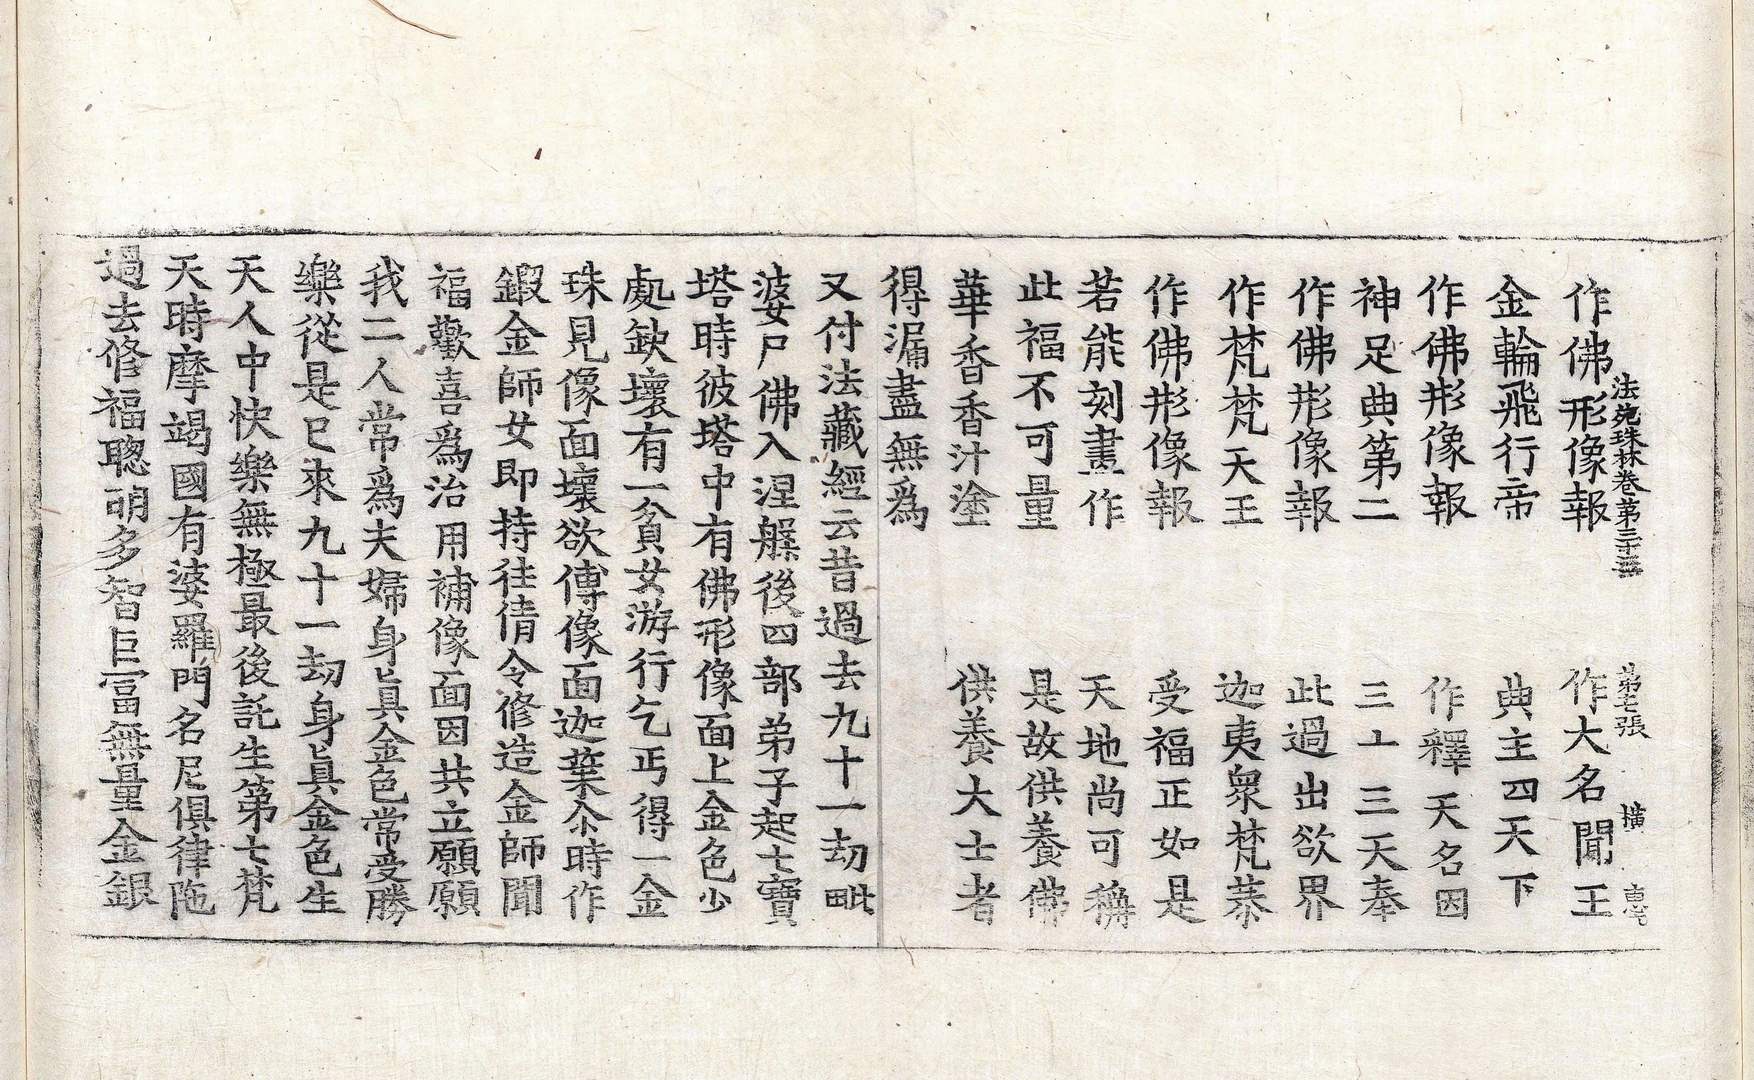 法苑珠林卷第三十三　第七張　橫
作佛形像報　作大名聞王
金輪飛行帝　典主四天下
作佛形像報　作釋天名因
神足典第二　三十三天奉
作佛形像報　此過出欲界
作梵梵天王　迦夷衆梵恭
作佛形像報　受福正如是
若能刻畫作　天地尚可稱
此福不可量　是故供養佛
華香香汁塗　供養大士者
得漏盡無爲
又付法藏經云昔過去九十一劫毗
婆尸佛入涅槃後四部弟子起七寶
塔時彼塔中有佛形像面上金色少
處缺壞有一貧女游行乞丐得一金
珠見像面壞欲傅像面迦葉尒時作
鍜金師女即持往倩令修造金師聞
福歡喜爲治用補像面因共立願願
我二人常爲夫婦身真金色常受勝
樂從是已來九十一劫身真金色生
天人中快樂無極最後託生第七梵
天時摩竭國有婆羅門名尼俱律陁
過去修福聰明多智巨富無量金銀